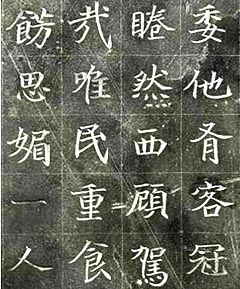 委他胥客冠
睠然西顧駕
哉唯民重食
餝思媚一人